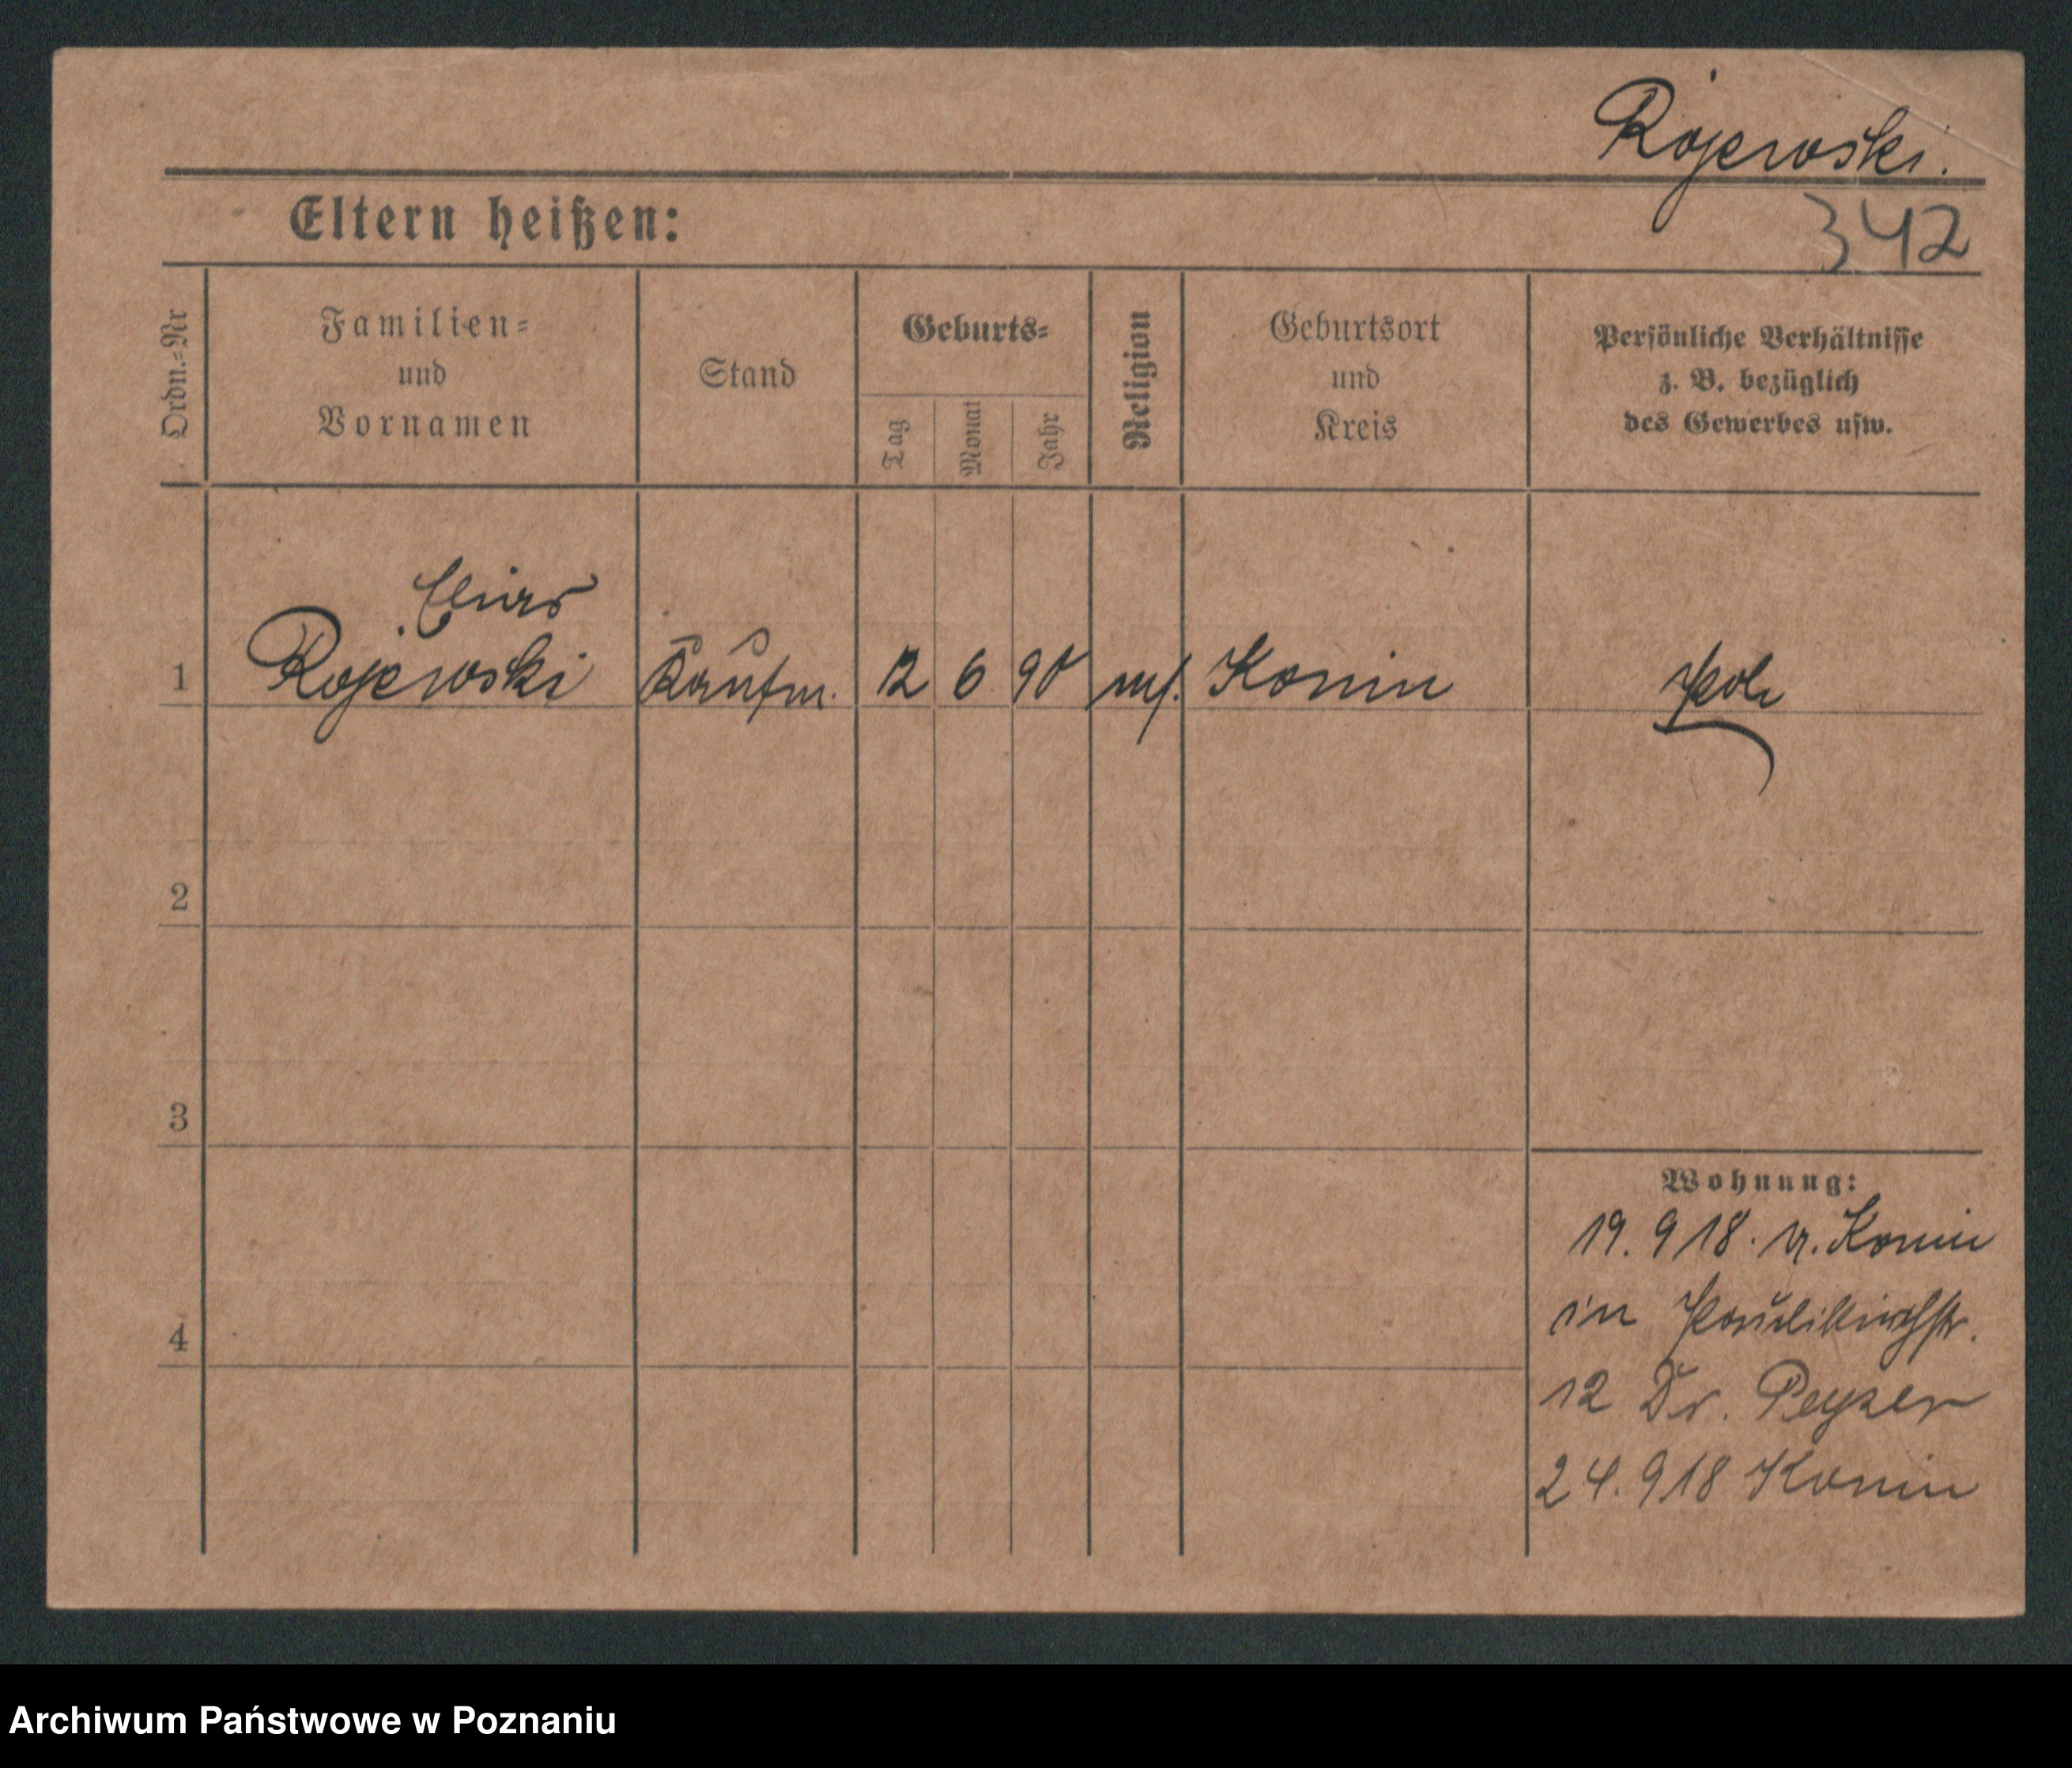 Rojewski.
342
Eltern heißen:
Ordn.-Nr
Familien-
und
Vornamen
Stand
Geburts-
Tag
Monat
Jahr
Religion
Geburtsort
und
Kreis
Persönliche Verhältnisse
z. B. bezüglich
des Gewerbes usw.
1 Rojewski Kaufm. 12 6 90 Konin Pole
2
3
4
Wohnung:
19. 9 18. v. Konin
in Paulikirchstr.
12 Dr. Peyser
24. 9 18 Konin
Archiwum Państwowe w Poznaniu